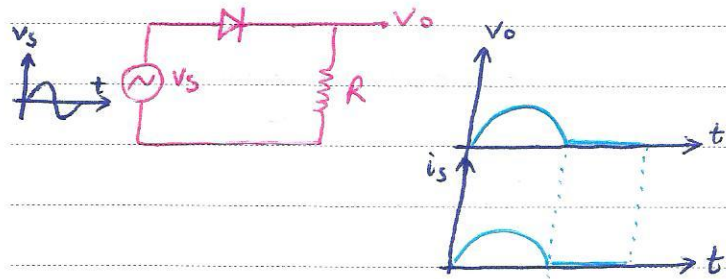 Vs
t
Vs
Vo
R
Vo
t
is
t